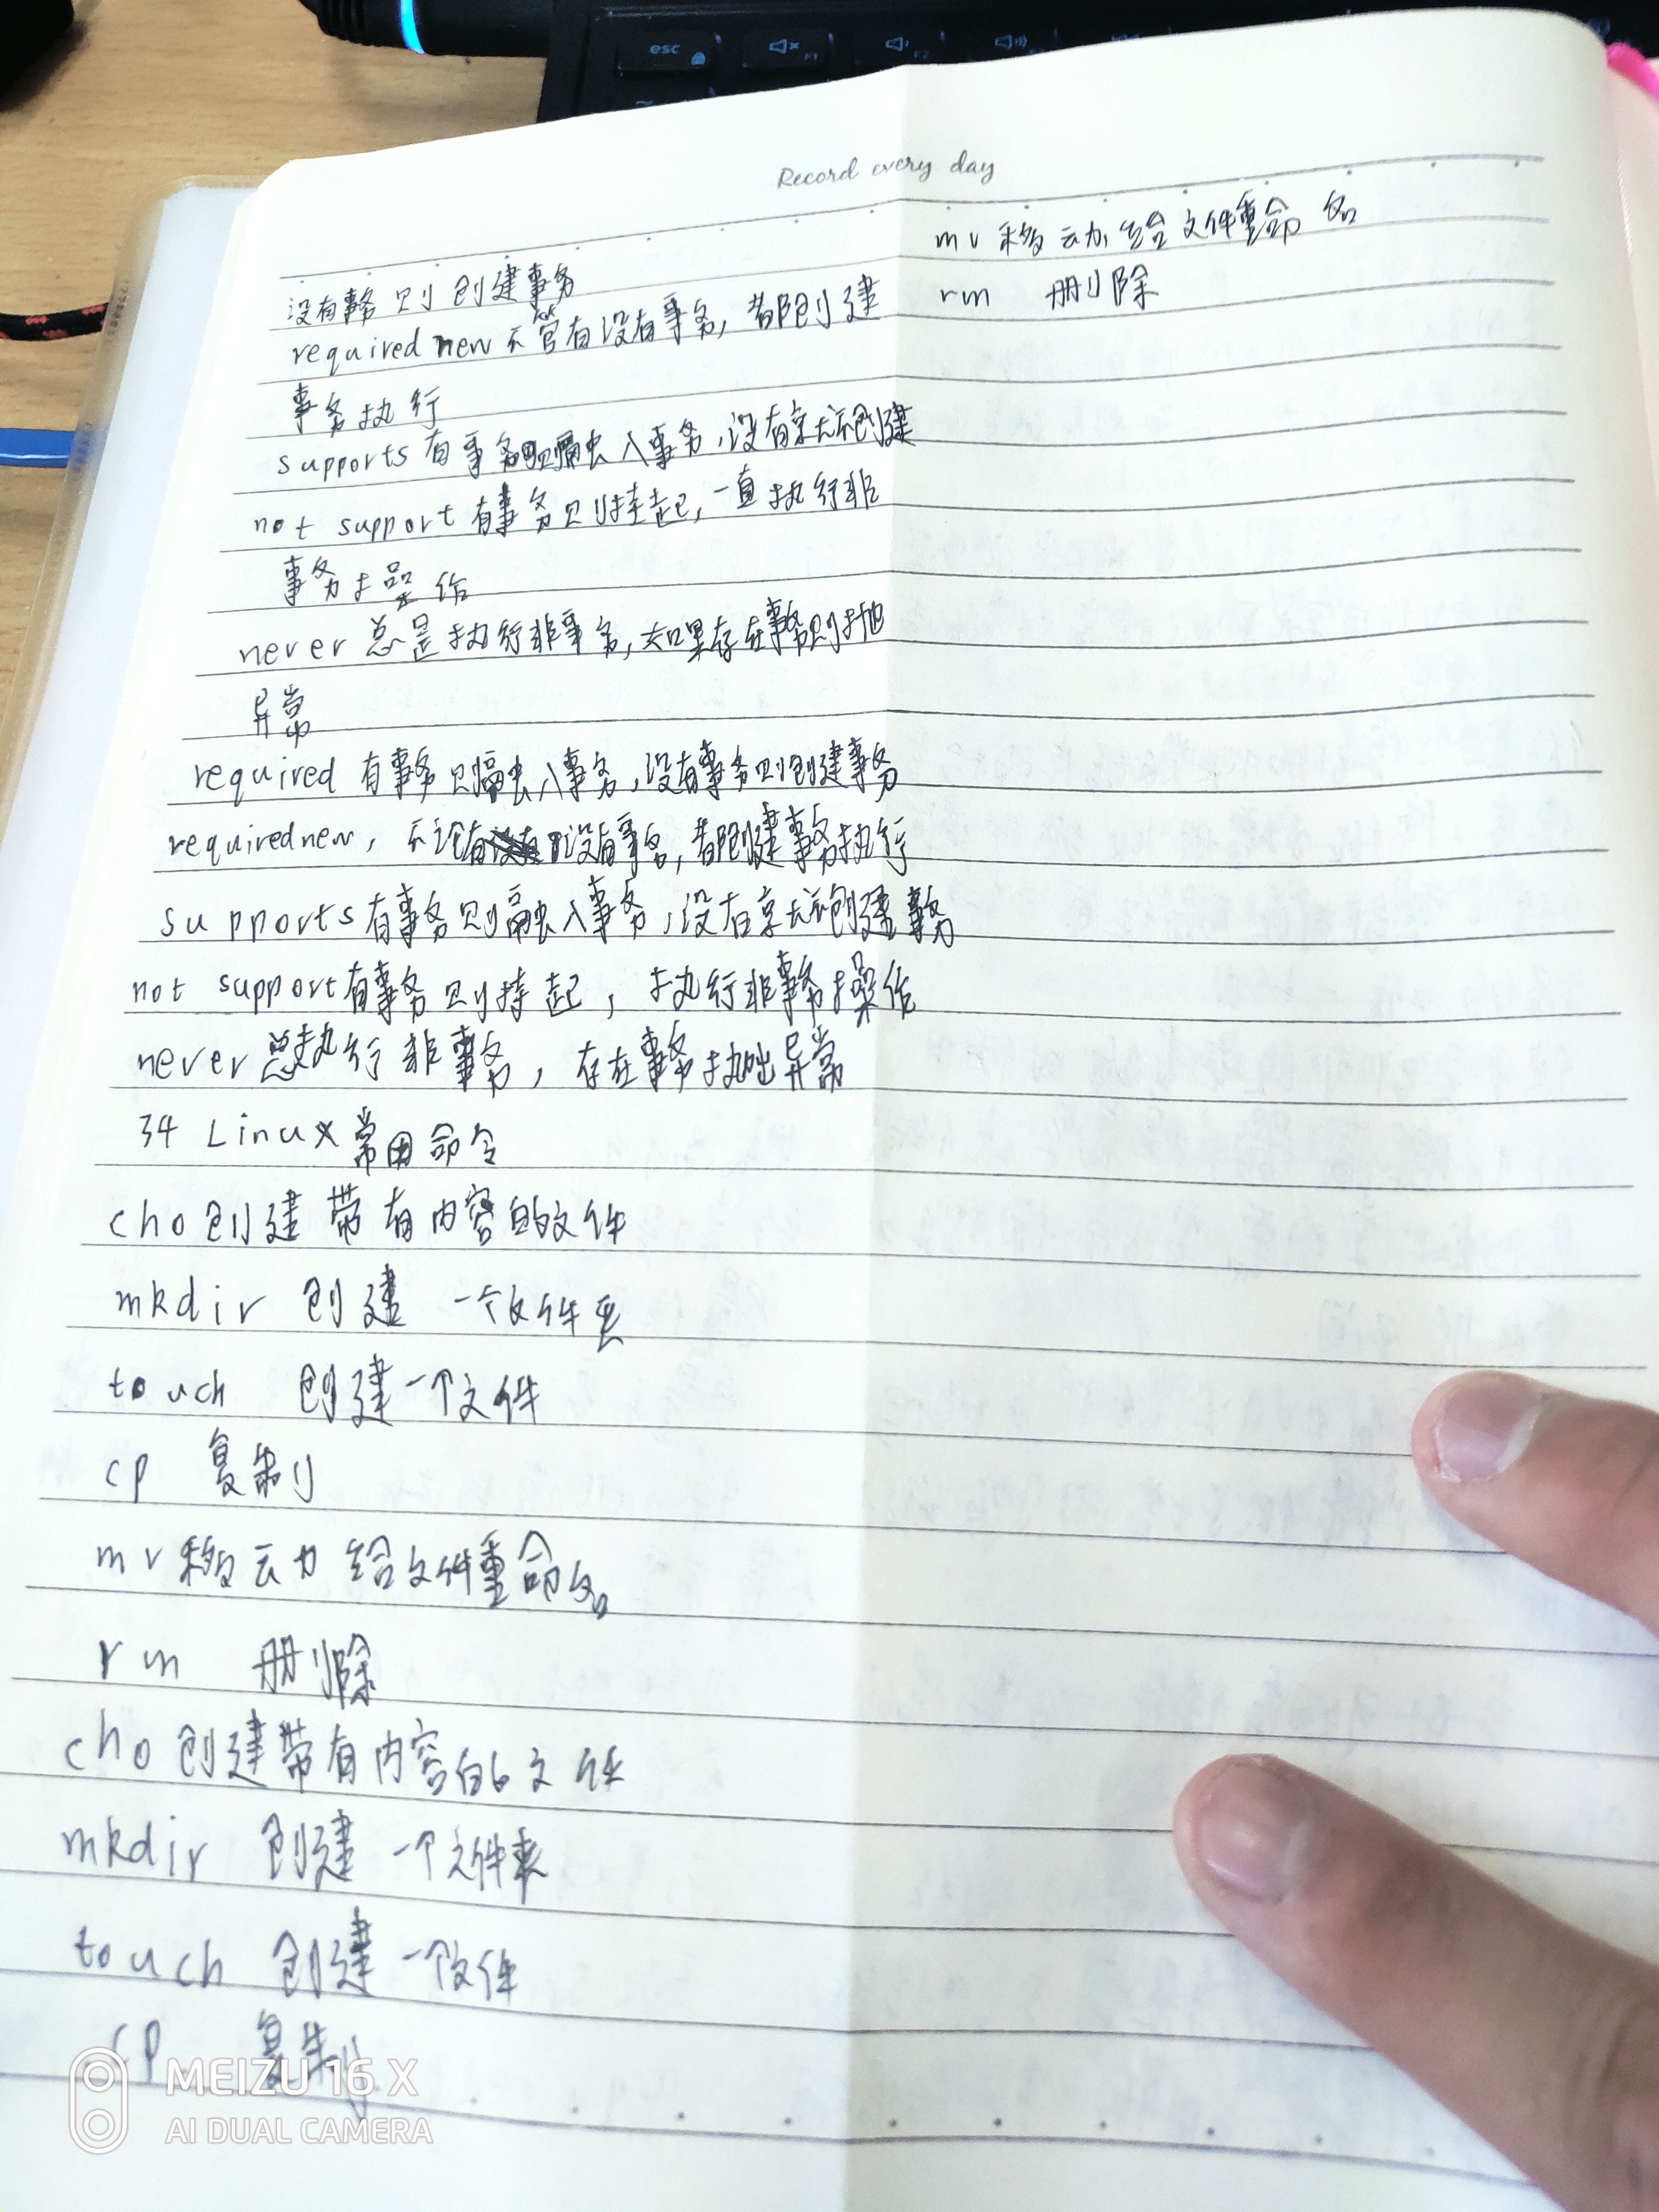 esc
Record every day
没有事务则创建事务
required new 不管有没有事务,都创建
事务执行
supports 有事务则融入事务,没有就不创建
not support 有事务则挂起,一直执行非
事务操作
never 总是执行非事务,如果存在事务则抛
异常
required 有事务则融入事务,没有事务则创建事务
requirednew, 不论有没有事务,都创建事务执行
supports 有事务则融入事务,没有就不创建事务
not support 有事务则挂起, 执行非事务操作
never 总执行非事务, 存在事务抛出异常
34 Linux常用命令
cho 创建带有内容的文件
mkdir 创建 一个文件夹
touch 创建一个文件
cp 复制
mv 移动 给文件重命名
rm 删除
cho 创建带有内容的文件
mkdir 创建 一个文件夹
touch 创建 一个文件
cp 复制
mv 移动 给文件重命名
rm 删除
MEIZU 16 X
AI DUAL CAMERA